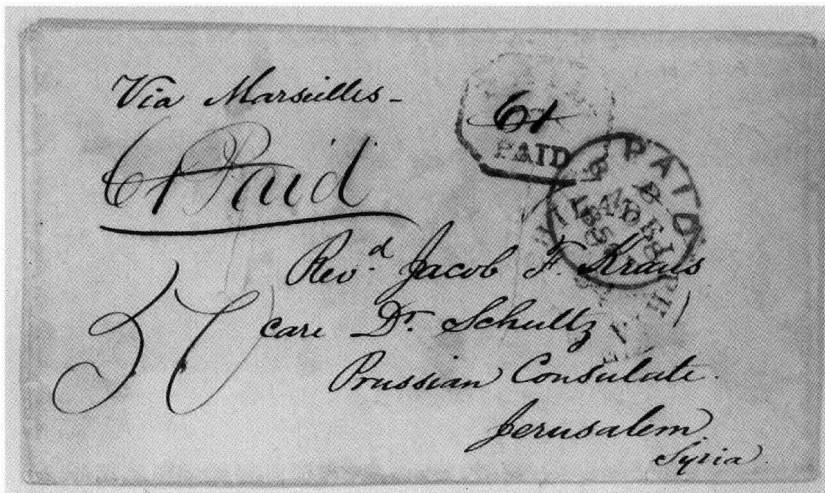 Via Marseilles -
61 Paid
61
PAID
PAID
Rev.d Jacob F. Kraus
care Dr. Schultz
Prussian Consulate.
Jerusalem
Syria